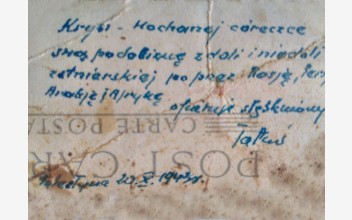 Krysi - Kochanej córeczce
swą podobiznę z doli i niedoli
żołnierskiej poprzez Rosję, Per
Arabię i Afrykę
ofiaruje stęskniony
Tatuś
CARTE POSTA
POST CAR
Palestyna 20.X.1943 r.